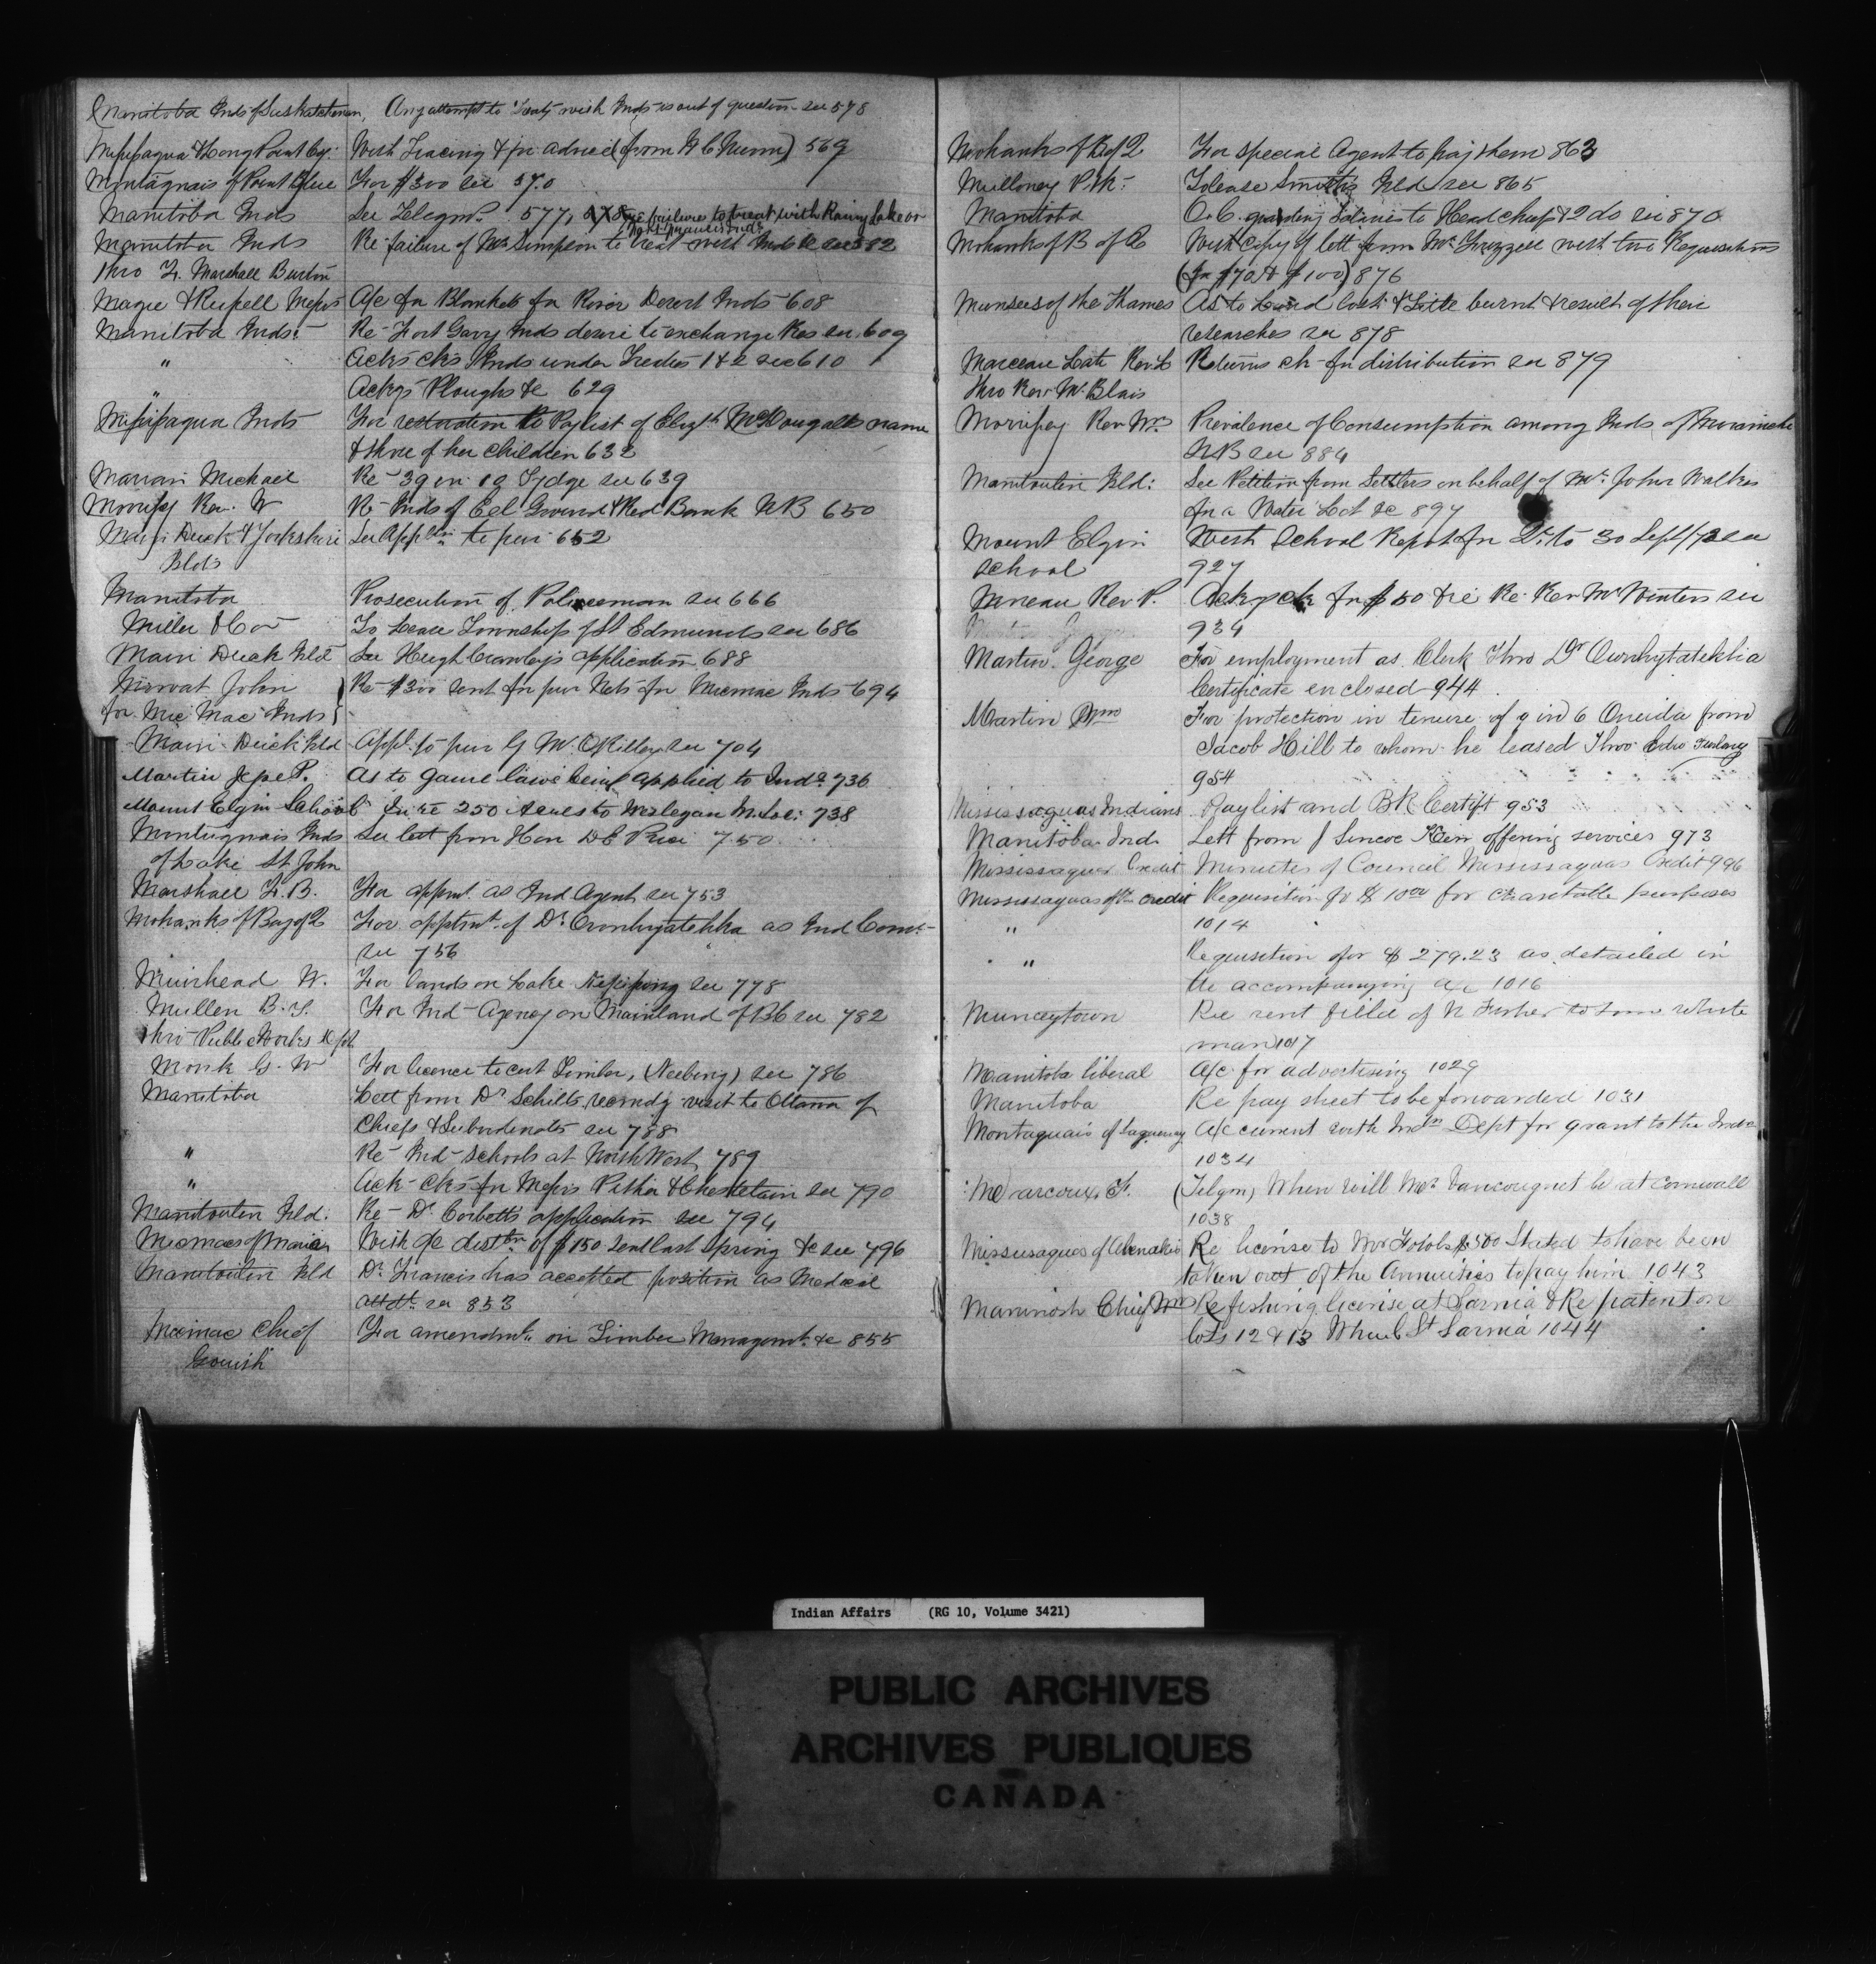 Manitoba Inds of Saskatchewan, Any attempt to Treaty with Inds is out of question see 578
Missisaqua & Long Point Coy: With Tracing & for advice (from H C Nunn) 569
Montagnais of Point Blue For $300 see 570
Manitoba Inds See Telegm. 577, 578 re failure to treat with Rainy Lake or
Fort Francis Inds
Manitoba Inds Re failure of Mr Simpson to treat with Inds &c see 582
thro F. Marshall Burton
Magee & Russell Messrs A/c for Blankets for River Desert Inds 608
Manitoba Inds: Re Fort Garry Inds desire to exchange Res see 609
" Acks cks Inds under Treaties 1 & 2 see 610
" Ackgs Ploughs &c 629
Missisaqua Inds For restoration to Paylist of Elizth McDougalls name
& those of her children 632
Marian Michael Re 39 in 10 Tydge see 639
Morrisy Rev. W Re Inds of Eel Ground & Red Bank NB 650
Main Duck & Yorkshire See Applin to pur 652
Islds
Manitoba Prosecution of Policeman see 666
Miller & Co To Lease Township of St Edmunds see 686
Main Duck Isld See Hugh Crawley's application 688
Mowat John } Re $300 sent for pur Nets for Micmac Inds 694
for Mic Mac Inds }
Main Duck Isld Appl. to pur by W. O'Killey see 704
Martin Jesse P. As to Game laws being applied to Inds 736
Mount Elgin School In re 250 Acres to Wesleyan M. Soc: 738
Montagnais Inds See lett from Hon D E Price 750
of Lake St John
Marshall F. B. For appmt as Ind Agent see 753
Mohawks of Bay of Q For apptmt of Dr Oronhyatekha as Ind Comr.
see 756
Muirhead W. For lands on Lake Nepissing see 778
Mullen B. T. For Ind Agency on Mainland of BC see 782
thro Public Works Dept
Monk G. W For licence to cut Timber, (Neebing) see 786
Manitoba Lett from Dr Schiltz recomdg visit to Ottawa of
Chiefs & Subordinates see 788
" Re Ind Schools at North West 789
" Ack cks for Messrs Pither & Chastelain see 790
Manitoulin Isld. Re Dr Corbett's application see 794
Micmacs of Maria With a/c distbn of $150 sent last Spring &c see 796
Manitoulin Isld Dr Francis has accepted position as Medical
Attdt. see 853
Micmac Chief For amendmts in Timber Managemt. &c 855
Gouish
Mohawks of B of Q For special Agent to pay them 863
Mulloney P. K. To lease Smith's Isld see 865
Manitoba O.C. granting Salaries to Head chief & 2 do see 870
Mohawks of B of Q With copy of lett from Mr Grizzell with two Requisitions
(for $70 & $100) 876
Munsees of the Thames As to Land Cost & Title burnt & result of their
researches see 878
Marceau Late Rev. L Returns ck for distribution see 879
thro Rev. Mr Blais
Morrissy Rev Wm Prevalence of Consumption among Inds of Miramichi
NB see 884
Manitoulin Isld: See Petition from Settlers on behalf of Mr. John Walker
for a Water Lot &c 897
Mount Elgin With School Report for Qr. to 30 Sept/72 see
School 927
Moreau Rev P. Ackg ck for $50 & re Re Rev Mr Winters see
934
Martin George For employment as Clerk Thro Dr Ownhytatekhia
Certificate enclosed 944
Martin Wm For protection in tenure of 9 in 6 Oneida from
Jacob Hill to whom he leased Thro Edw Furlong
954
Mississaguas Indians Paylist and BR Certift 953
Manitoba Ind. Lett from J Simcoe Kerr offering services 973
Mississagues Credit Minutes of Council Mississaguas Credit 996
Mississaguas of the Credit Requisition for $ 10 00 for charitable purposes
" 1014
" Requisition for $ 279.23 as detailed in
the accompanying a/c 1016
Munceytown Re rent field of N Fisher to some white
man 1017
Manitoba liberal A/c for advertising 1029
Manitoba Re pay sheet to be forwarded 1031
Montagnais of Saguenay A/c current with Indn Dept for grant to the Inds
1034
Marcoux F. (Telgm) When will Mr Vancougnet be at Cornwall
1038
Missisagues of Alnwick Re license to Mr $500 Stated to have been
taken out of the Annuities to pay him 1043
Maninosh Chief Wm Re fishing license at Sarnia & Re patent on
lots 12 & 13 St Sarnia 1044
Indian Affairs (RG 10, Volume 3421)
PUBLIC ARCHIVES
ARCHIVES PUBLIQUES
CANADA